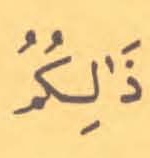 ذَٰلِكُمُ